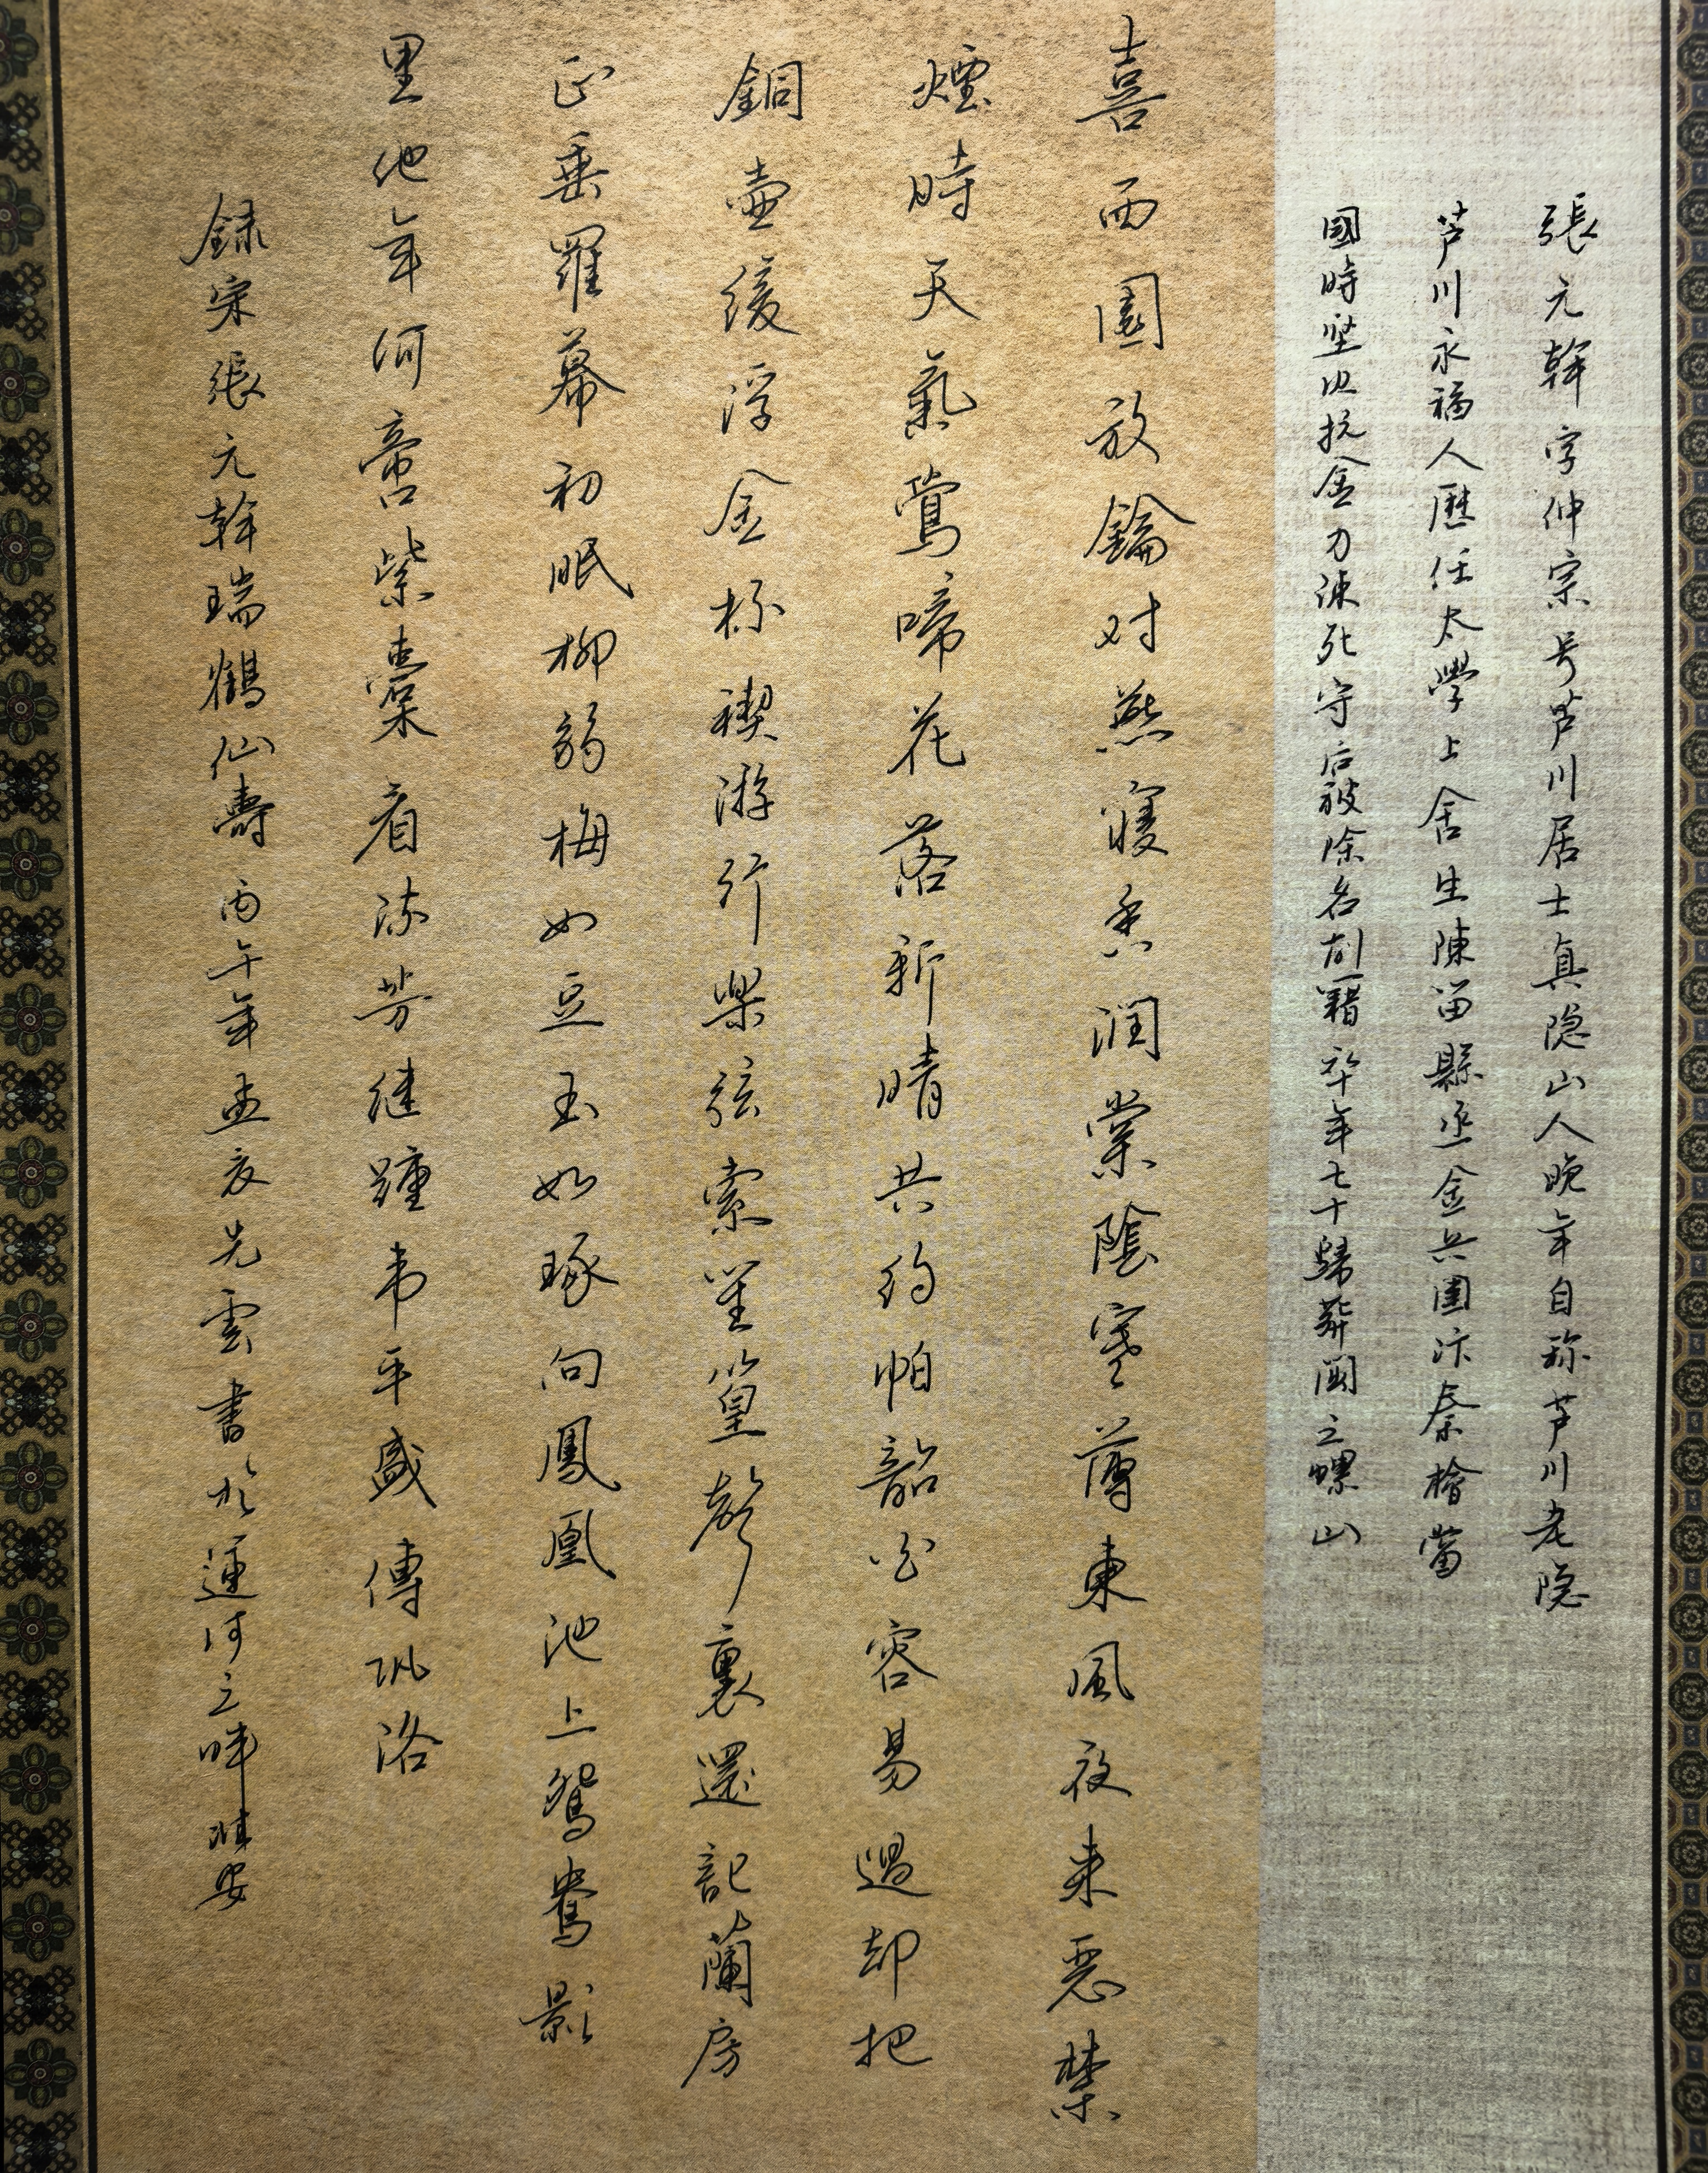 張元幹字仲宗号芦川居士真隐山人晚年自称芦川老隐
芦川永福人歷任太學上舍生陳留縣丞金兵圍汴秦檜當
國時坚决抗金力諫死守后被除名削籍卒年七十歸葬闽之螺山
喜西園放鑰对燕寝香潤棠陰寒薄東風夜来惡禁
煙時天氣鶯啼花落新晴共约怕韶光容易過却把
銅壺缓浮金杯禊游行樂弦索笙篁聲裏還記蘭房
正垂羅幕初眠柳弱梅如豆玉如琢向鳳凰池上鴛鴦影
里他年何啻紫橐看流芳继踵韦平盛傳巩洛
録宋張元幹瑞鶴仙壽丙午年孟夏光雲書於運河之畔臨安